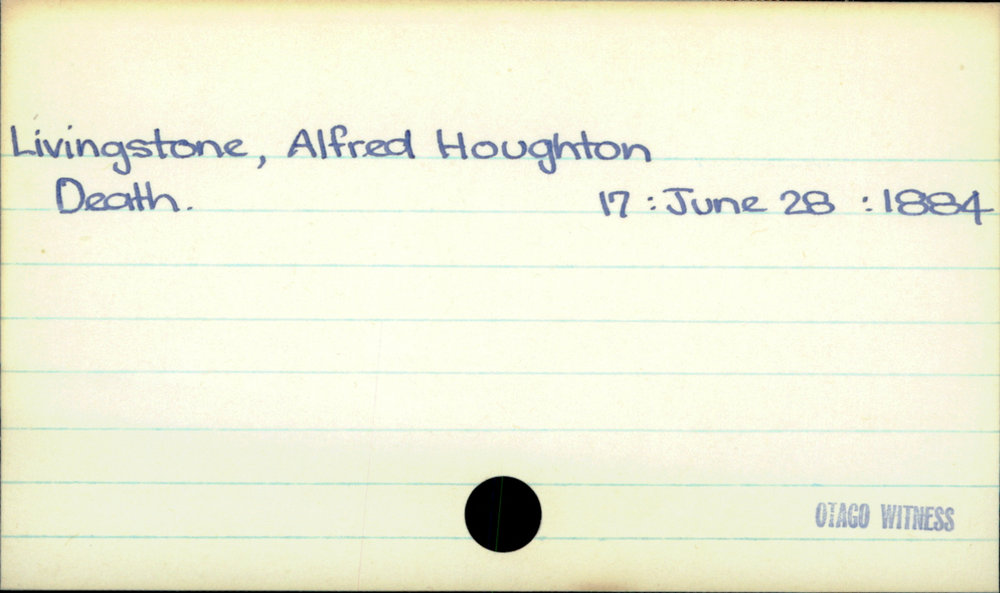 Livingstone, Alfred Houghton
Death. 17 : June 28 : 1884
OTAGO WITNESS